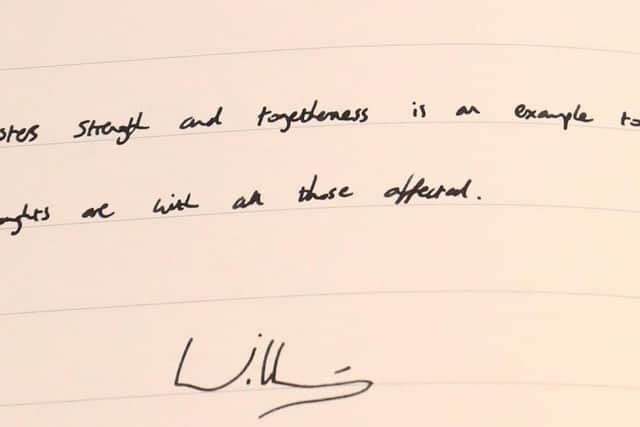 strength and togetherness is an example to
are with all those affected.